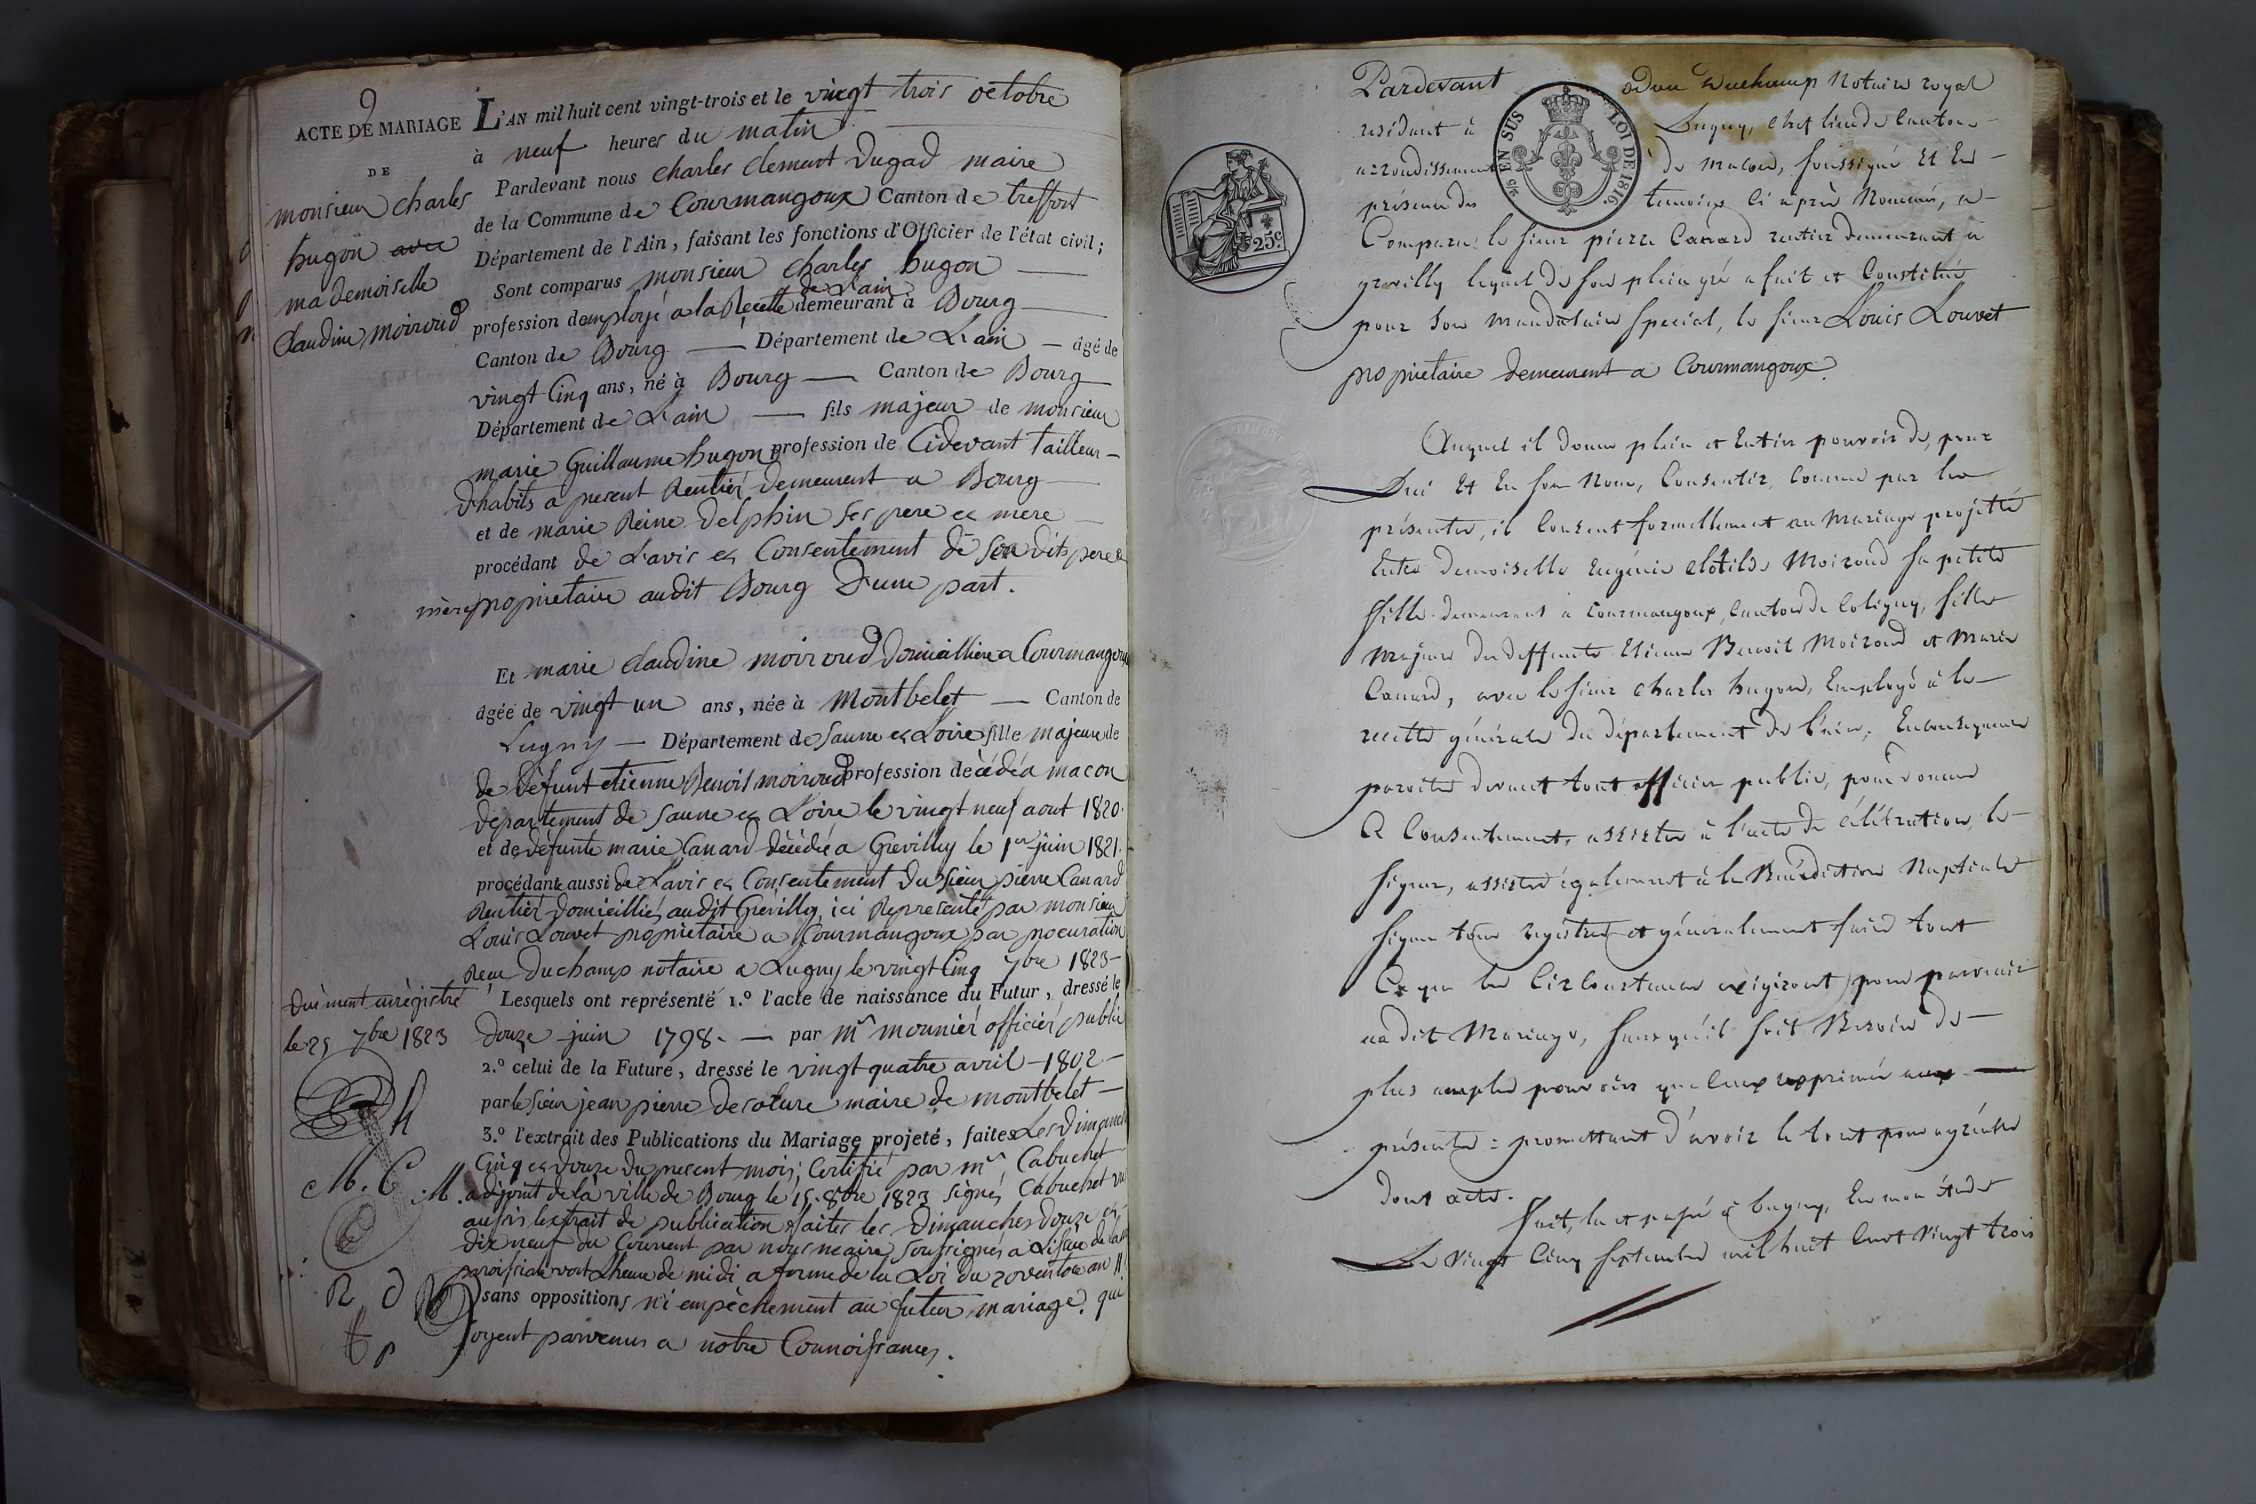 9
ACTE DE MARIAGE
DE
monsieur charles
hugon avec
mademoiselle
Claudine moiroud
L'AN mil huit cent vingt-trois et le vingt trois octobre
à neuf heures du matin
Pardevant nous charles clement Dugad maire
de la Commune de Courmangoux Canton de treffort
Département de l'Ain, faisant les fonctions d'Officier de l'état civil;
Sont comparus monsieur charles hugon
profession demployé a la Recette de Lain demeurant à Bourg
Canton de Bourg Département de Lain âgé de
vingt Cinq ans, né à Bourg Canton de Bourg
Département de Lain fils majeur de monsieur
marie Guillaume hugon profession de Cidevant tailleur
Dhabits a present Rentier demeurent a Bourg
et de marie Reine Delphin ses pere et mere
procédant de Lavis et Consentement de ses dits pere et
mere propriétaire audit Bourg D'une part.
Et marie claudine moiroud domicilliere a Courmangoux
âgée de vingt un ans, née à Montbelet Canton de
Lugny Département de Saune et Loire fille majeure de
de défunt etienne Benoit moiroud profession décédé a macon
département de Saune et Loire le vingt neuf aout 1820.
et de défunte marie Canard décédée a Grevilly le 1er juin 1821.
procédante aussi de Lavis et Consentement du sieur pierre Canard
Rentier domicillié audit Grevilly, ici Représenté par monsieur
Louis Louvet propriétaire a Courmangoux par procuration
Reçue Duchamp notaire a Lugny le vingt Cinq 7bre 1823
Duement enrégistré
le 25 7bre 1823
Lesquels ont représenté 1.º l'acte de naissance du Futur, dressé le
Douze juin 1798. par mr mounier officier public
2.º celui de la Future, dressé le vingt quatre avril 1802
par le sieur jean pierre Desolure maire de montbelet
3.º l'extrait des Publications du Mariage projeté, faites Les Dimanches
Cinq et douze du present mois; Certifié par mr Cabuchet
adjoint de la ville de Bourg le 15. 8bre 1823 signés Cabuchet vu
aussi lextrait de publication faites les Dimanches Douze et
dix neuf du Courrent par nous maire soussignés a Lissue de la
paroissiale vers Lheure de midi a forme de la Loi du 20 ventose an 11
sans oppositions ni empèchement au futur mariage. qui
soyent parvenus a notre Connoissances.
h
M. C M.
R d
t p
Pardevant Duchamp Notaire royal
résidant à Lugny, chef lieu de Canton
arrondissement de macon, soussigné Et En
présence des temoins ci après Nommés, a
Comparu le sieur pierre Canard rentier demeurant à
grevilly lequel de son plein gré a fait et Constitué
pour son mandataire special, le sieur Louis Louvet
propriétaire demeurent a Courmangoux.
Auquel il donne plein et Entier pouvoir de, pour
Lui Et En son Nom, Consentir, comme par les
présentes, il Consent formellement au Mariage projetté
Entre demoiselle Eugénie clotilde Moiroud sa petite
fille demeurant à Courmangoux, Canton de Coligny, fille
majeure de deffunts Etienne Benoit Moiroud et Marie
Canard, avec le sieur Charles hugon, Employé à la
recette générale du département de l'ain; En conséquence
paroitre devant tout officier public, pour donner
Ce Consentement, assister à l'acte de célébration, le
signer, assister également à la Bénédiction Nuptiale
signer tous registres et généralement faire tout
Ce que les Circonstances exigeront pour parvenir
audit Mariage, sans qu'il soit Besoin de
plus amples pouvoirs que Ceux exprimés aux
présentes = promettant d'avoir le tout pour agréable
dont acte.
fait, lu et passé à Lugny, En mon étude
Le vingt Cinq septembre mil huit Cent vingt trois
EN SUS
LOI DE 1816.
25c.